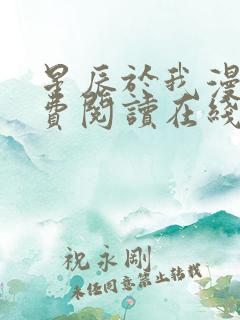 星辰於我漫
費閱讀在綫
祝永剛
未經同意禁止轉載